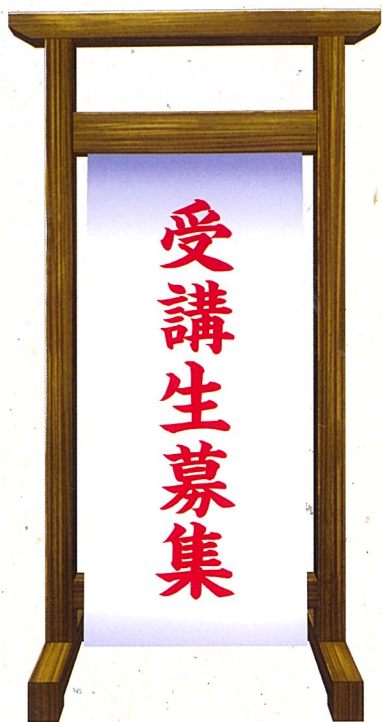 受講生募集